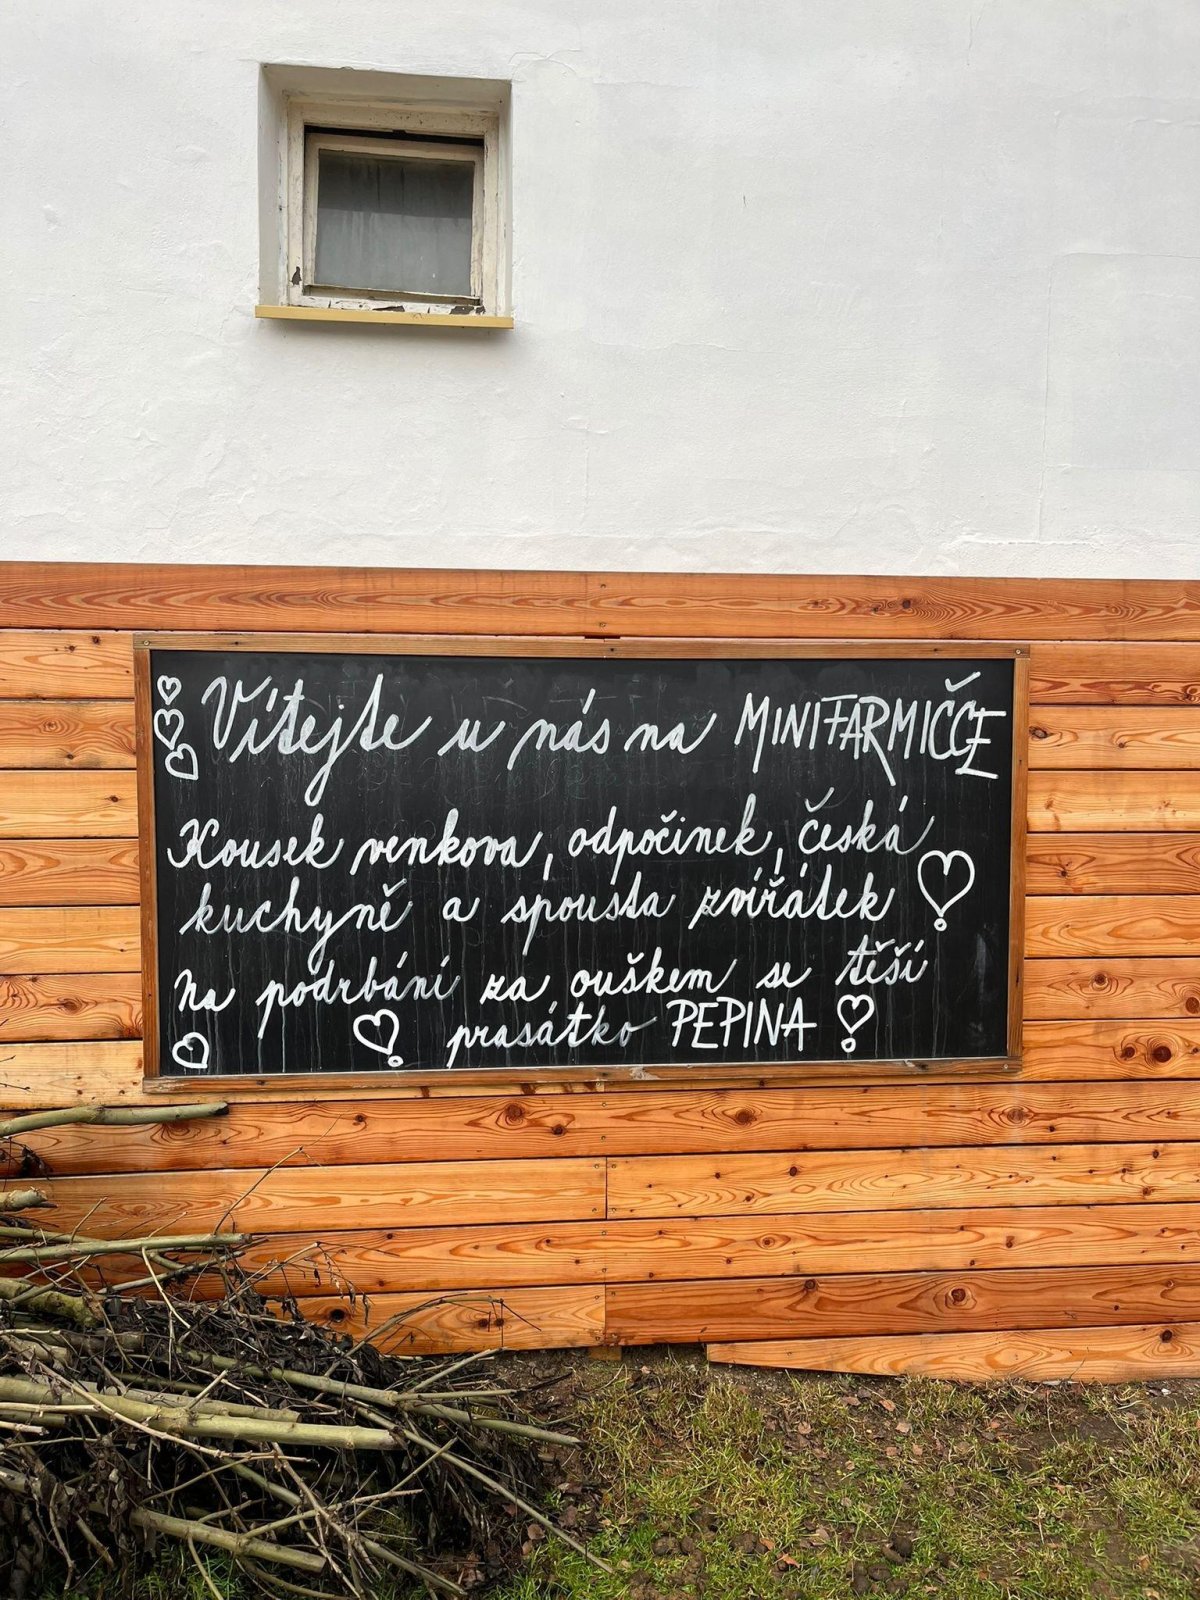 Vítejte u nás na MINIFARMIČCE
Kousek venkova, odpočinek, česká
kuchyně a spousta zvířátek
Na podrbání za ouškem se těší
prasátko PEPINA